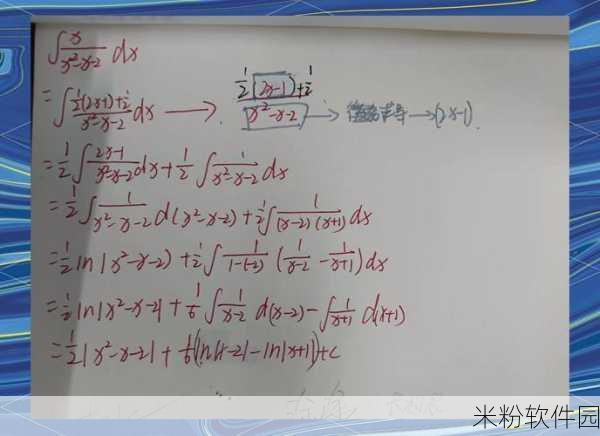 ∫ x/(x²-x-2) dx
= ∫ (½(2x-1)+½)/(x²-x-2) dx → (½(2x-1)+½)/(x²-x-2) → 求导 → (2x-1)
= ½ ∫ (2x-1)/(x²-x-2) dx + ½ ∫ 1/(x²-x-2) dx
= ½ ∫ 1/(x²-x-2) d(x²-x-2) + ½ ∫ 1/((x-2)(x+1)) dx
= ½ ln|x²-x-2| + ½ ∫ 1/(1-(-2)) (1/(x-2) - 1/(x+1)) dx
= ½ ln|x²-x-2| + 1/6 ∫ 1/(x-2) d(x-2) - ∫ 1/(x+1) d(x+1)
= ½ |x²-x-2| + 1/6 (ln|x-2| - ln|x+1|) + c
米粉软件园